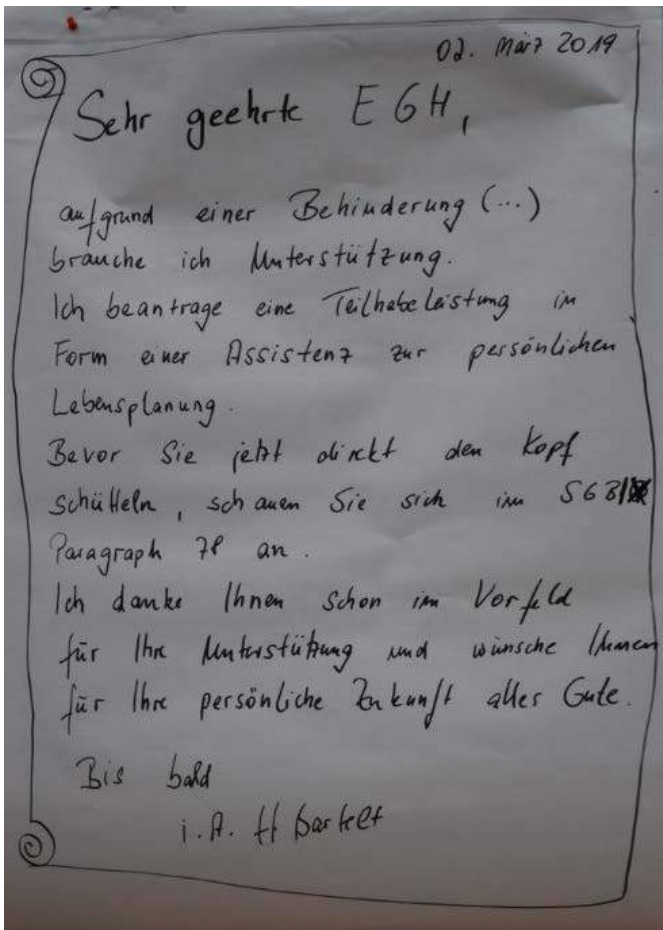 02. März 2019
Sehr geehrte EGH,
aufgrund einer Behinderung (...)
brauche ich Unterstützung.
Ich beantrage eine Teilhabeleistung im
Form einer Assistenz zur persönlichen
Lebensplanung.
Bevor Sie jetzt direkt den Kopf
schütteln, schauen Sie sich im SGB
Paragraph 78 an.
Ich danke Ihnen schon im Vorfeld
für Ihre Unterstützung und wünsche Ihnen
für Ihre persönliche Zukunft alles Gute.
Bis bald
i.A. H Bartelt